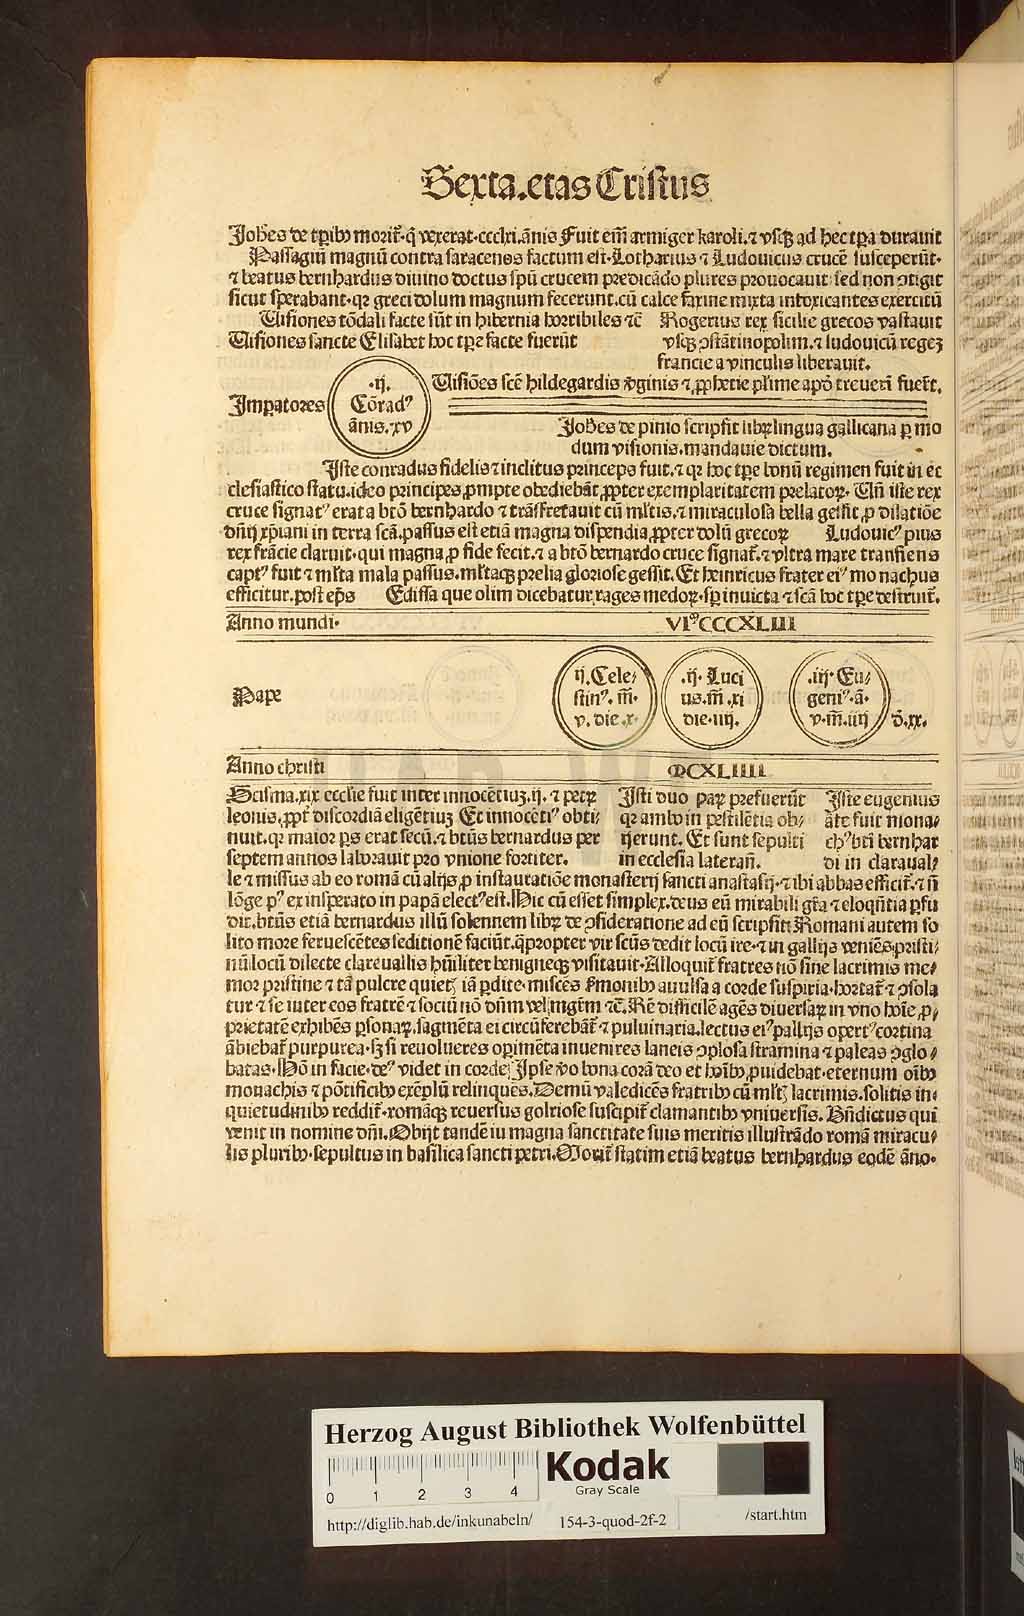 Sexta.etas Cristus
Joh̄es de tꝑibꝰ morit̄·q̄ vexerat·ccclxi.ānis Fuit em̄ armiger karoli.⁊ vsq̄ ad hec tꝑa durauit
Passagiū magnū contra saracenos factum est·Lotharius ⁊ Ludouicus crucē susceperūt·
⁊ beatus bernhardus diuino doctus spū crucem predicādo plures prouocauit·sed non ↄtigit
sicut sperabant·qꝛ greci dolum magnum fecerunt.cū calce farine mixta intoxicantes exercitū
Uisiones tōdali facte sūt in hibernia horribiles ⁊c̄ Rogerius rex sicilie grecos vastauit
Uisiones sancte Elisabet hoc tꝑe facte fuerūt vsq̄ ↄstātinopolim.⁊ ludouicū regeꝫ
francie a vinculis liberauit.
Uisiōes scē hildegardis v̄ginis ⁊ ꝓphetie pl̄ime apd̄ treuerī fuer̄t.
Imꝑatores
·ij.
Cōradꝰ
ānis.xv
Joh̄es de pinio scripsit librꝫ lingua gallicana ꝑ mo
dum visionis.mandauie dictum.
Iste conradus fidelis ⁊ inclitus princeps fuit.⁊ qꝛ hoc tꝑe bonū regimen fuit in ec
clesiastico statu.ideo principes ꝓmpte obediebāt ꝓpter exemplaritatem prelatoꝝ· Un̄ iste rex
cruce signatꝰ erat a btō bernhardo ⁊ trāsfretauit cū ml̄tis.⁊ miraculosa bella gessit ꝓ dilatiōe
dn̄ij xp̄iani in terra scā.passus est etiā magna dispendia ꝓpter dolū grecoꝝ Ludouicꝰ pius
rex frācie claruit·qui magna ꝓ fide fecit.⁊ a btō bernardo cruce signat̄.⁊ vltra mare transiens
captꝰ fuit ⁊ ml̄ta mala passus.ml̄taqꝫ prelia gloriose gessit. Et heinricus frater eiꝰ mo nachus
efficitur.post ep̄s Edissa que olim dicebatur rages medoꝝ·sꝑ inuicta ⁊ scā hoc tꝑe destruit̄.
Anno mundi· VIᵐCCCXLIII
Pape
ij. Cele⸗
stinꝰ. m̄·
v. die.x·
·ij· Luci
us.m̄.xi
die·iiij.
.iij· Eu⸗
geniꝰ·ā·
v·m̄.iiij
d̄.xx.
Anno christi MCXLIIII
Scisma.xix eccl̄ie fuit inter innocētiuꝫ.ij. ⁊ petrꝫ
leonis.ꝓpt̄ discordiā eligētiuꝫ Et innocētiꝰ obti⸗
nuit.qꝛ maior ps erat secū.⁊ btūs bernardus per
septem annos laborauit pro vnione fortiter.
Isti duo papꝫ prefuerūt
qꝛ ambo in pestilētia ob⸗
ijerunt. Et sunt sepulti
in ecclesia laterañ.
Iste eugenius
āte fuit mona⸗
chꝰ bti bernhar
di in claraual⸗
le ⁊ missus ab eo romā cū alijs ꝓ instauratiōe monasterij sancti anastasij·⁊ ibi abbas efficit̄.⁊ nō
lōge pꝰ ex insperato in papā electꝰ est. Hic cū esset simplex.deus eū mirabili gr̄a ⁊ eloqn̄tia ꝑfu
dit.btūs etiā bernardus illū solennem librꝫ de ↄsideratione ad eū scripsit. Romani autem so
lito more feruescētes seditionē faciūt.q̄propter vir scūs dedit locū ire·⁊ in gallijs veniēs.pristi⸗
nū locū dilecte clareuallis hūiliter benigneqꝫ visitauit·Alloquit̄ fratres nō sine lacrimis me⸗
mor pristine ⁊ tā pulcre quietꝭ iā ꝑdite·miscēs ẜmonibꝰ auulsa a corde suspiria·hortat̄ ⁊ ↄsola
tur ⁊ se inter eos fratrē ⁊ sociū nō dn̄m vel mgr̄m ⁊c̄. Rē difficilē agēs diuersaꝝ in vno hoīe ꝓ⸗
prietatē exhibēs ꝑsonaꝝ.sagmēta ei circūferebāt̄ ⁊ puluinaria.lectus eiꝰ pallijs opertꝰ cortina
ābiebat̄ purpurea·sꝫ si reuolueres oꝑimēta inuenires laneis ↄplosa stramina ⁊ paleas ↄglo⸗
batas. Hō in facie·deꝰ videt in corde Ipse v̄o bona corā deo et hoībꝰ ꝓuidebat·eternum oībꝰ
monachis ⁊ pōtificibꝰ exēplū relinques. Demū valedicēs fratribꝰ cū ml̄tꝭ lacrimis.solitis in⸗
quietudinibꝰ reddit̄·romāqꝫ reuersus golriose suscipit̄ clamantibꝰ vniuersis. Bn̄dictus qui
venit in nomine dn̄i. Obijt tandē iu magna sanctitate suis meritis illustrādo romā miracu⸗
lis pluribꝰ·sepultus in basilica sancti petri. Morit̄ statim etiā beatus bernhardus eodē āno·
Herzog August Bibliothek Wolfenbüttel
0 1 2 3 4
Kodak
Gray Scale
http://diglib.hab.de/inkunabeln/ 154-3-quod-2f-2 /start.htm